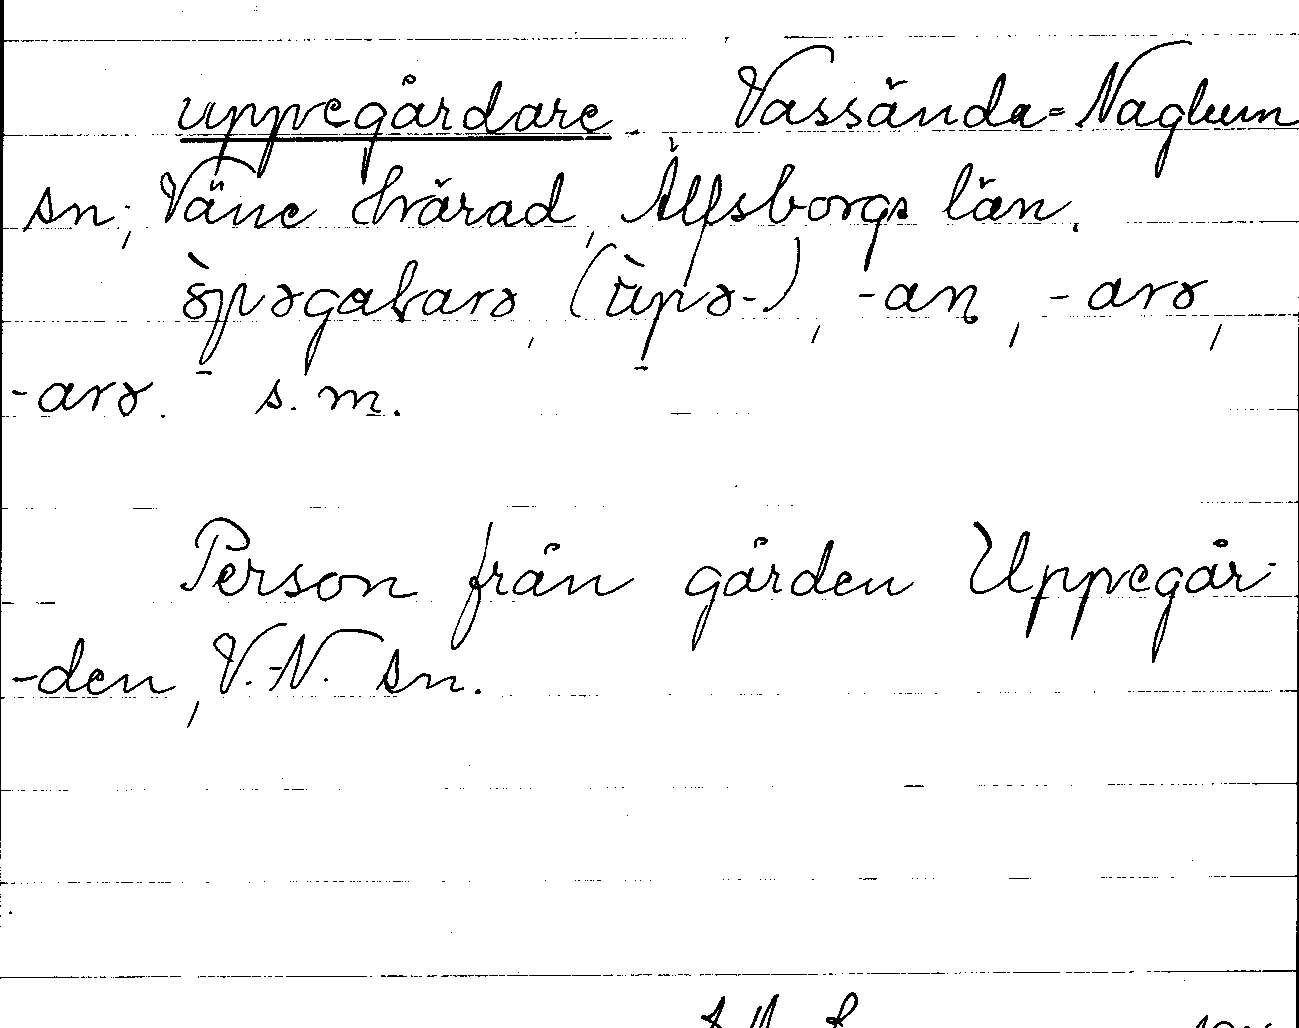 uppegårdare. Vassända-Naglum
sn, Väne härad, Älfsborgs län.
-an, -arə,
-arə. s. m.
Person från gården Uppegår-
-den, V.-N. sn.